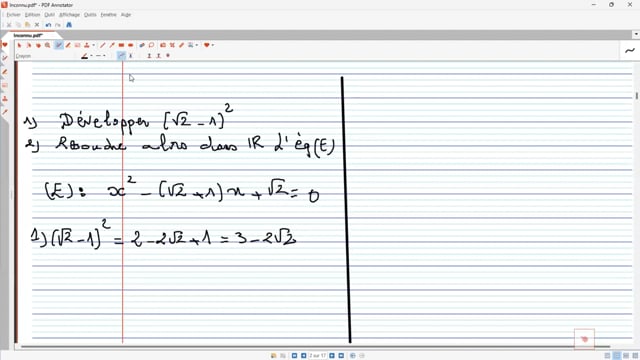 Inconnu.pdf* - PDF Annotator
Fichier Edition Outil Affichage Outils Fenêtre Aide
Inconnu.pdf*
Crayon
1) Développer (√2 - 1)²
2) Résoudre alors dans IR l'éq(E)
(E): x² - (√2 + 1)x + √2 = 0
1) (√2 - 1)² = 2 - 2√2 + 1 = 3 - 2√2
2 sur 17